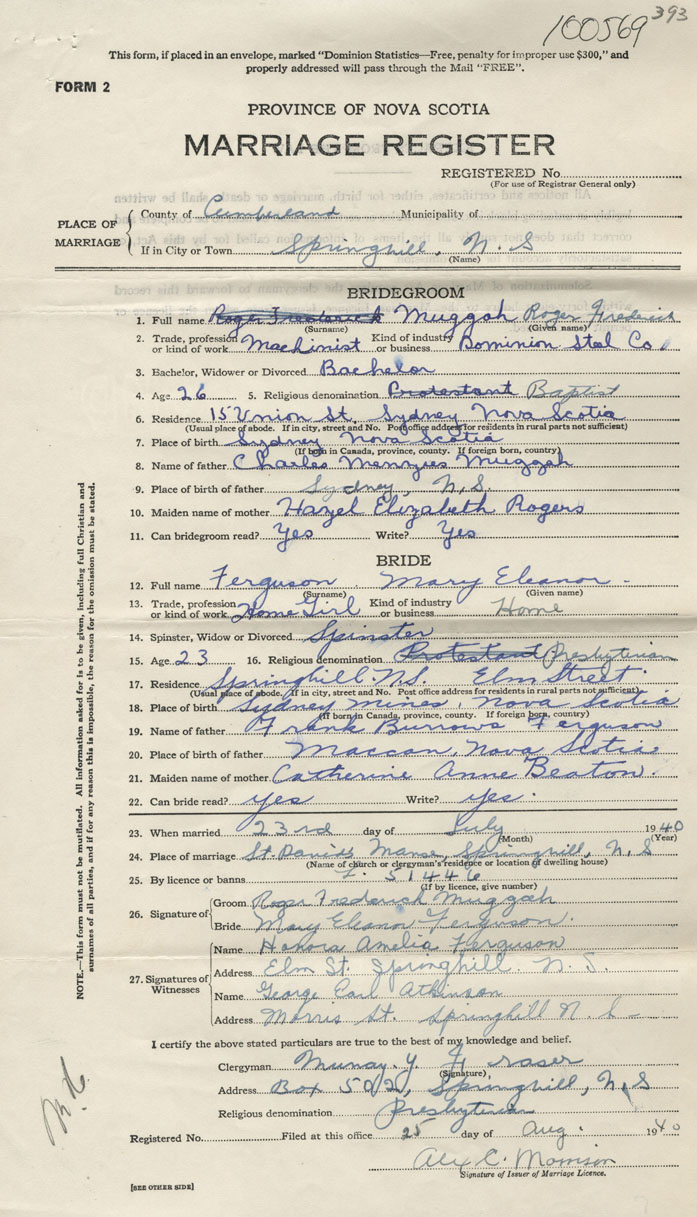 100569 393
This form, if placed in an envelope, marked "Dominion Statistics—Free, penalty for improper use $300," and
properly addressed will pass through the Mail "FREE".
FORM 2
PROVINCE OF NOVA SCOTIA
MARRIAGE REGISTER
REGISTERED No.
(For use of Registrar General only)
PLACE OF MARRIAGE
County of Cumberland Municipality of
If in City or Town Springhill, N. S
(Name)
BRIDEGROOM
1. Full name Roger Frederick Muggah Roger Frederick
(Surname) (Given name)
2. Trade, profession or kind of work Machinist Kind of industry or business Dominion Stal Co.
3. Bachelor, Widower or Divorced Bachelor
4. Age 26 5. Religious denomination Protestant Baptist
6. Residence 15 Union St, Sydney Nova Scotia
(Usual place of abode. If in city, street and No. Post office address for residents in rural parts not sufficient)
7. Place of birth Sydney Nova Scotia
(If born in Canada, province, county. If foreign born, country)
8. Name of father Charles Menzies Muggah
9. Place of birth of father Sydney, N.S.
10. Maiden name of mother Hazel Elizabeth Rogers
11. Can bridegroom read? Yes Write? Yes
BRIDE
12. Full name Ferguson Mary Eleanor
(Surname) (Given name)
13. Trade, profession or kind of work Home Girl Kind of industry or business Home
14. Spinster, Widow or Divorced Spinster
15. Age 23 16. Religious denomination Protestant Presbyterian
17. Residence Springhill N.S. Elm Street
(Usual place of abode. If in city, street and No. Post office address for residents in rural parts not sufficient)
18. Place of birth Sydney mines, Nova Scotia
(If born in Canada, province, county. If foreign born, country)
19. Name of father Frank Burrows Ferguson
20. Place of birth of father Maccan, Nova Scotia
21. Maiden name of mother Catherine Anne Beaton.
22. Can bride read? yes Write? yes.
23. When married 23rd day of July 1940
(Month) (Year)
24. Place of marriage St. David's Manse, Springhill, N. S
(Name of church or clergyman's residence or location of dwelling house)
25. By licence or banns 51446
(If by licence, give number)
26. Signature of
Groom Roger Frederick Muggah
Bride Mary Eleanor Ferguson.
27. Signatures of Witnesses
Name Honora Amelia Ferguson
Address Elm St. Springhill. N. S.
Name George Earl Atkinson
Address Morris St. Springhill N. S
I certify the above stated particulars are true to the best of my knowledge and belief.
Clergyman Murray Y. Fraser
(Signature)
Address Box 502, Springhill, N. S
Religious denomination Presbyterian
Registered No. Filed at this office 25 day of Aug. 1940
Alex C. Morrison
Signature of Issuer of Marriage Licence.
[SEE OTHER SIDE]
NOTE.—This form must not be mutilated. All information asked for is to be given, including full Christian and
surnames of all parties, and if for any reason this is impossible, the reason for the omission must be stated.